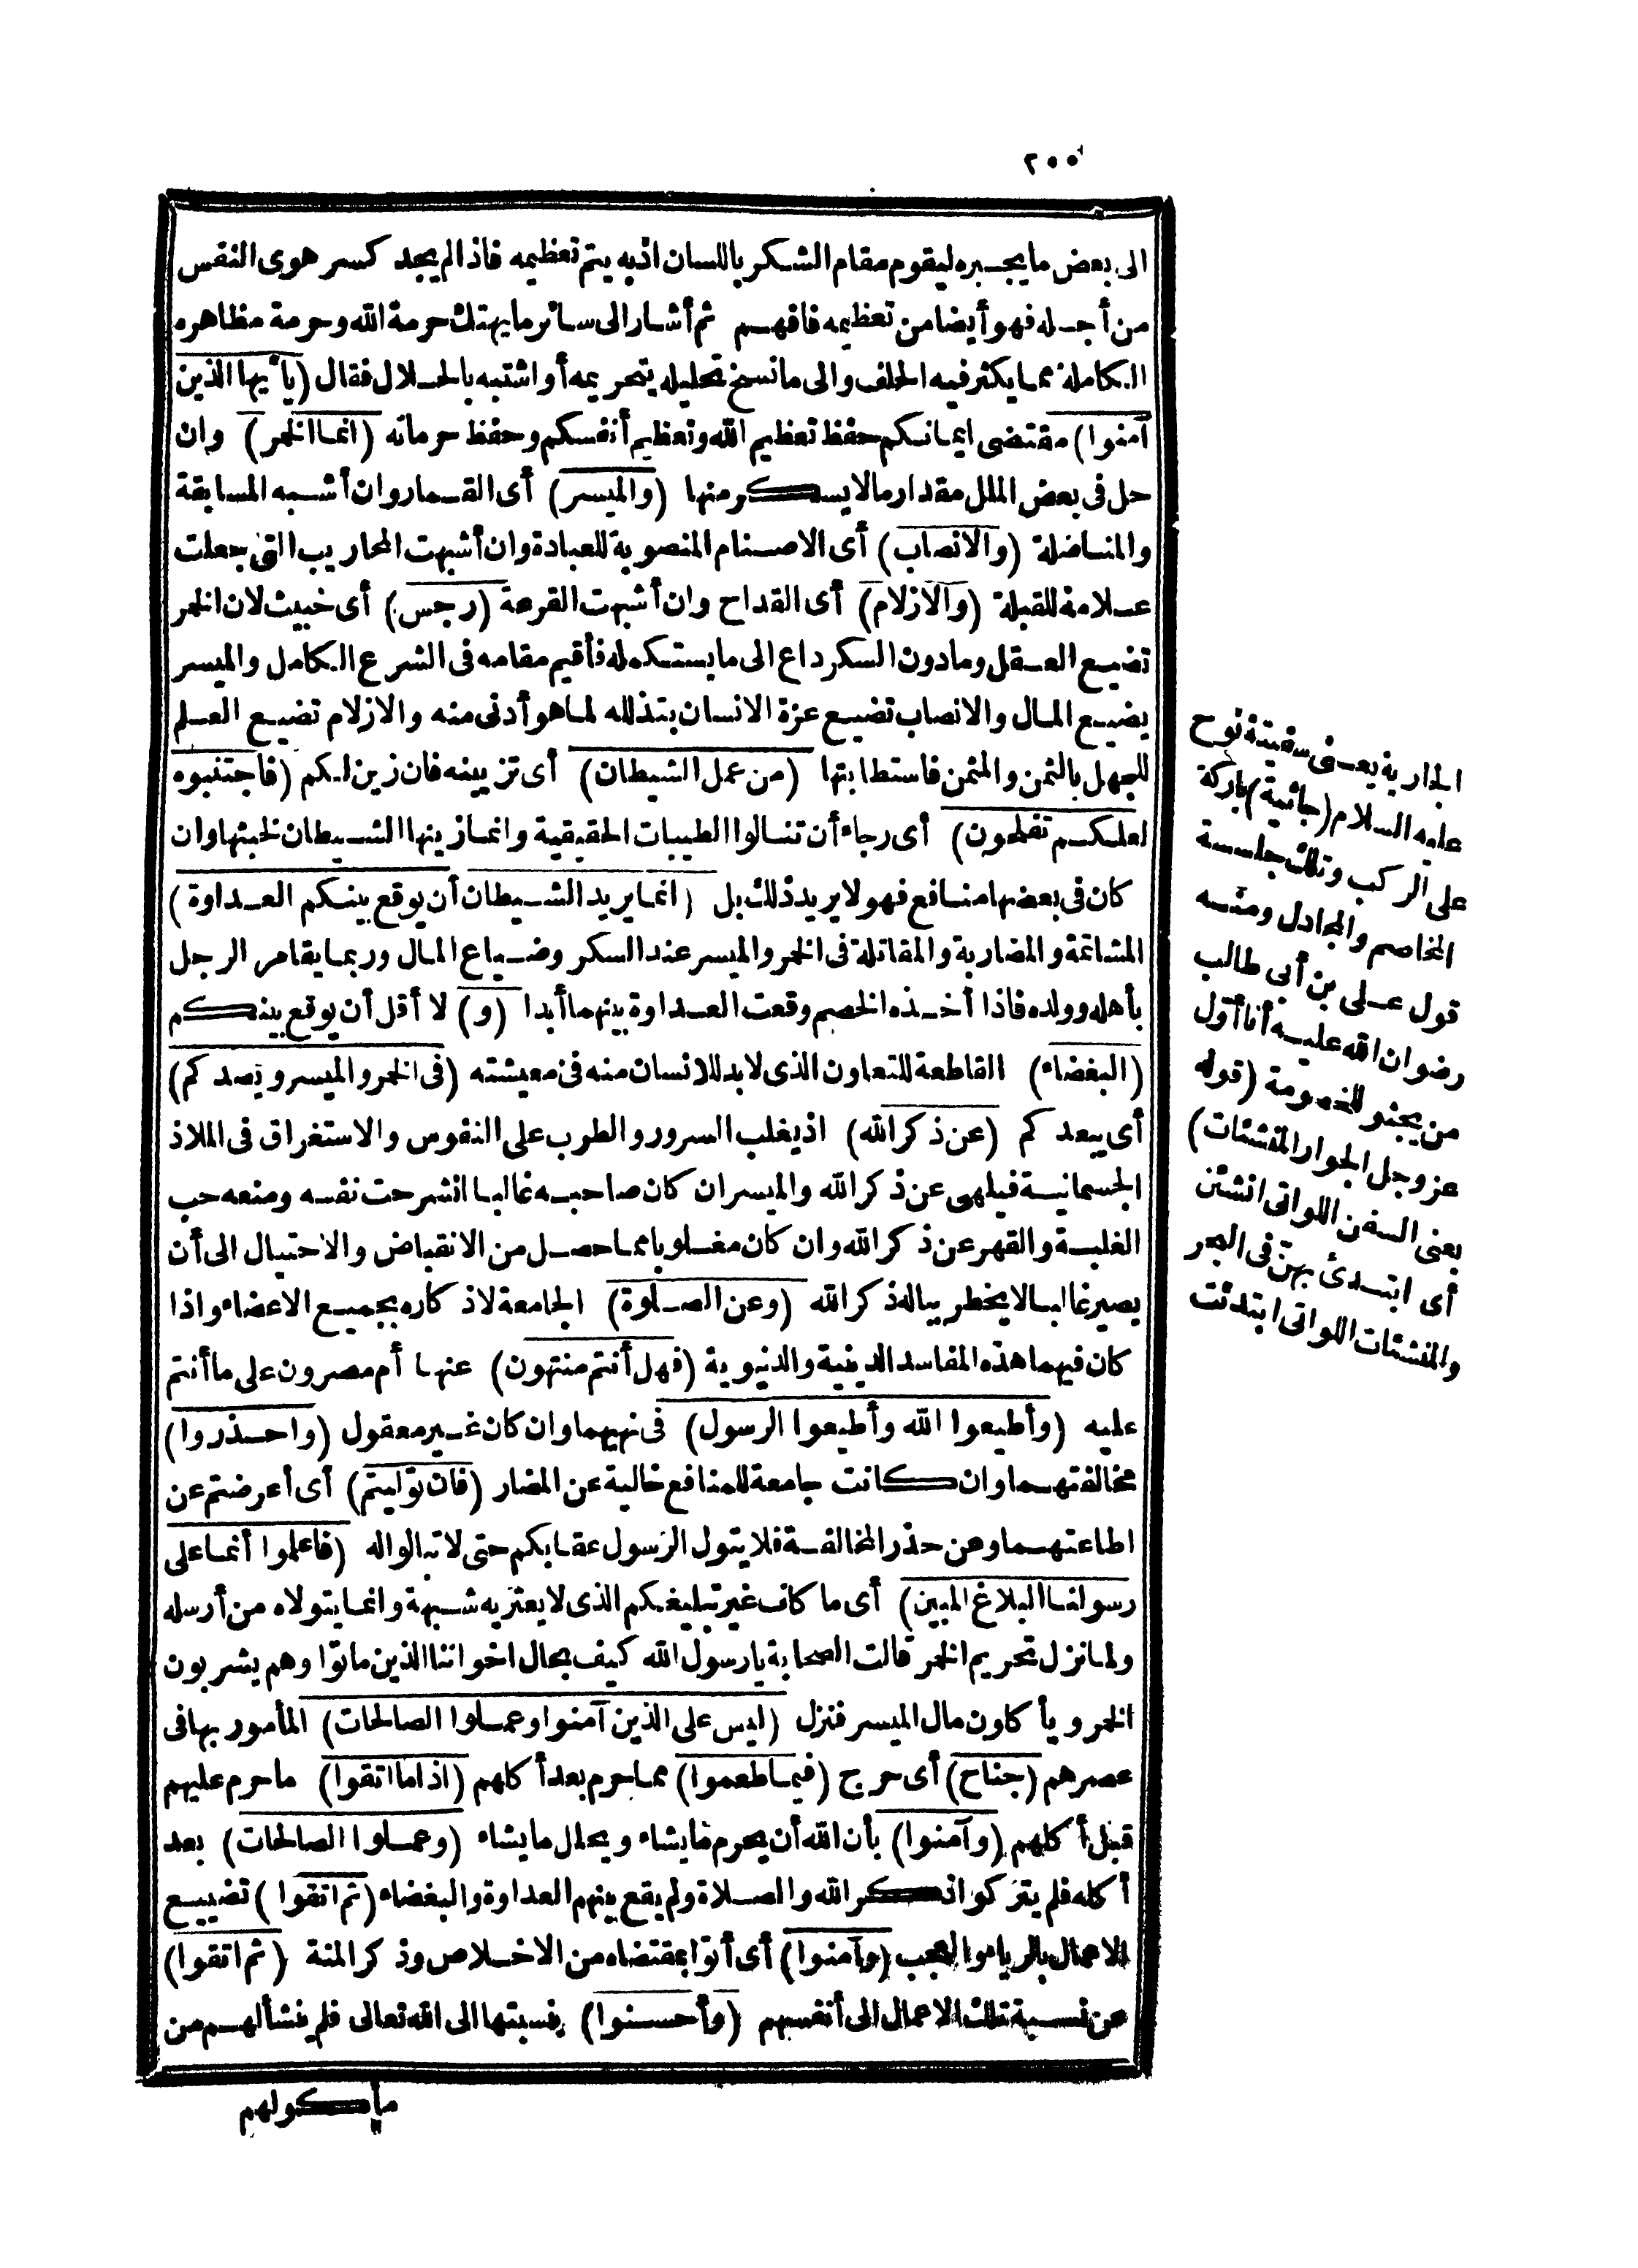 ٢٠٠
الى بعض ما يجبره ليقوم مقام الشكر باللسان اذبه يتم تعظيمه فاذا لم يجد كسر هوى النفس
من أجله فهو أيضا من تعظيمه فافهم ثم أشار الى سائر ما يهتك حرمة الله وحرمة مظاهره
الكاملة مما يكثر فيه الحلف والى ما نسخ تحليله بتحريمه أو اشتبه بالحلال فقال (يا أيها الذين
آمنوا) مقتضى ايمانكم حفظ تعظيم الله وتعظيم أنفسكم وحفظ حرماته (انما الخمر) وان
حل فى بعض الملل مقدار ما لا يسكر منها (والميسر) أى القمار وان أشبه المسابقة
والمناضلة (والانصاب) أى الاصنام المنصوبة للعبادة وان أشبهت المحاريب التى جعلت
علامة للقبلة (والازلام) أى القداح وان أشبهت القرعة (رجس) أى خبيث لان الخمر
تضيع العقل وما دون السكر داع الى ما يستكمله فأقيم مقامه فى الشرع الكامل والميسر
يضيع المال والانصاب تضيع عزة الانسان بتذلله لما هو أدنى منه والازلام تضيع العلم
للجهل بالثمن والمثمن فاستطابتها (من عمل الشيطان) أى تزيينه فان زين لكم (فاجتنبوه
لعلكم تفلحون) أى رجاء أن تنالوا الطيبات الحقيقية وانما زينها الشيطان لخبثها وان
كان فى بعضها منافع فهو لا يريد ذلك بل (انما يريد الشيطان أن يوقع بينكم العداوة)
المشاتمة والمضاربة والمقاتلة فى الخمر والميسر عند السكر وضياع المال وربما يقامر الرجل
بأهله وولده فاذا أخذه الخصم وقعت العداوة بينهما أبدا (و) لا أقل أن يوقع بينكم
(البغضاء) القاطعة للتعاون الذى لابد للانسان منه فى معيشته (فى الخمر والميسر ويصدكم)
أى يبعدكم (عن ذكر الله) اذ يغلب السرور والطرب على النفوس والاستغراق فى الملاذ
الجسمانية فيلهى عن ذكر الله والميسر ان كان صاحبه غالبا انشرحت نفسه ومنعه حب
الغلبة والقهر عن ذكر الله وان كان مغلوبا مما حصل من الانقباض والاحتيال الى أن
يصير غالبا لا يخطر بباله ذكر الله (وعن الصلوة) الجامعة لاذكاره بجميع الاعضاء واذا
كان فيهما هذه المفاسد الدينية والدنيوية (فهل أنتم منتهون) عنها أم مصرون على ما أنتم
عليه (وأطيعوا الله وأطيعوا الرسول) فى نهيهما وان كان غير معقول (واحذروا)
مخالفتهما وان كانت جامعة للمنافع خالية عن المضار (فان توليتم) أى أعرضتم عن
اطاعتهما وعن حذر المخالفة فلا يتول الرسول عقابكم حتى لا تبالوا له (فاعلموا أنما على
رسولنا البلاغ المبين) أى ما كان غير تبليغكم الذى لا يعتريه شبهة وانما يتولاه من أرسله
ولما نزل تحريم الخمر قالت الصحابة يا رسول الله كيف بحال اخواننا الذين ماتوا وهم يشربون
الخمر ويأكلون مال الميسر فنزل (ليس على الذين آمنوا وعملوا الصالحات) المأمور بها فى
عصرهم (جناح) أى حرج (فيما طعموا) مما حرم بعد أكلهم (اذا ما اتقوا) ما حرم عليهم
قبل أكلهم (وآمنوا) بأن الله أن يحرم ما يشاء ويحلل ما يشاء (وعملوا الصالحات) بعد
أكله فلم يتركوا ذكر الله والصلاة ولم يقع بينهم العداوة والبغضاء (ثم اتقوا) تضييع
الاعمال بالرياء والعجب (وآمنوا) أى أتوا بمقتضاه من الاخلاص وذكر المنة (ثم اتقوا)
عن نسبة تلك الاعمال الى أنفسهم (وأحسنوا) بنسبتها الى الله تعالى فلم ينشأ لهم من
مأكولهم
الجارية يعنى سفينة نوح
عليه السلام (جاثية) باركة
على الركب وتلك جلسة
المخاصم والمجادل ومنه
قول على بن أبى طالب
رضوان الله عليه أنا أول
من يجثو للخصومة (قوله
عز وجل الجوار المنشئات)
يعنى السفن اللواتى انشئن
أى ابتدئ بهن فى البحر
والمنشئات اللواتى ابتدئت